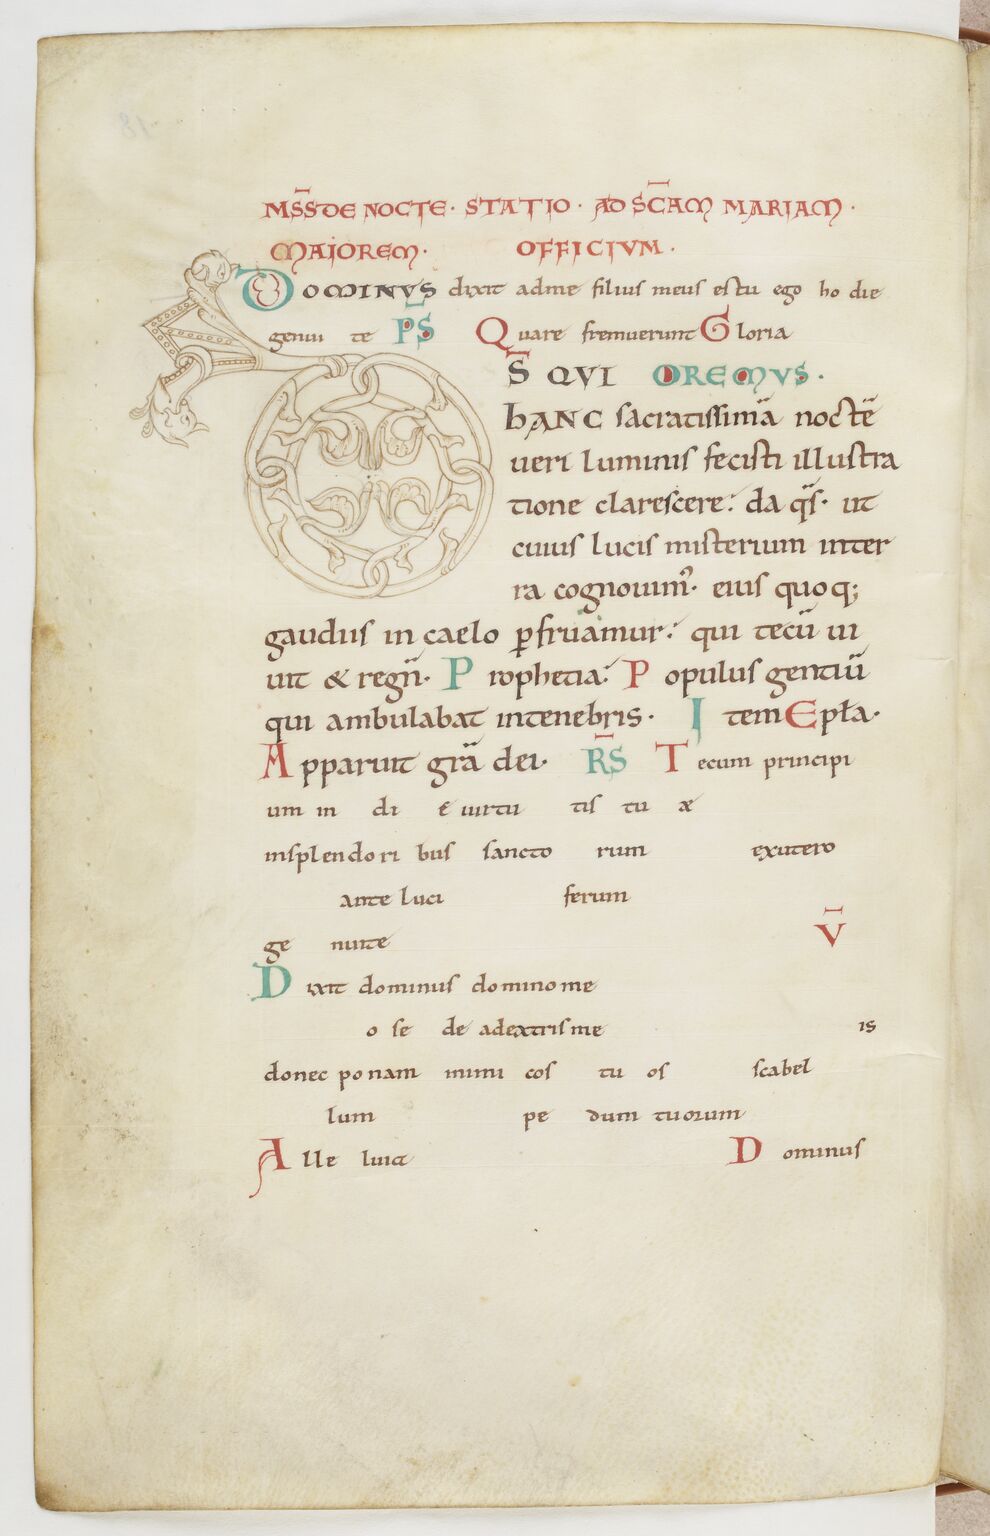 MS̄S DE NOCTE · STATIO · AD SC̄AM MARIAM ·
MAIOREM · OFFICIVM ·
DOMINVS dixit adme filius meus es tu ego ho die
genui te PS̄ Quare fremuerunt Gloria
DS̄ QVI OREMVS ·
hANC sacratissimā noctē
ueri luminis fecisti illustra
tione clarescere: da qs̄· ut
cuius lucis misterium inter
ra cognouim᾿· eius quoq;
gaudiis in caelo ꝑfruamur: qui tecū ui
uit & regn̄· Prophetia: Populus gentiū
qui ambulabat intenebris· Item Epła·
Apparuit grā dei· RS̄ Tecum principi
um in di e uirtu tis tu æ
insplendori bus sancto rum exutero
ante luci ferum
ge nuite V̄
Dixit dominus domino me
o se de adextris me is
donec ponam inimi cos tu os scabel
lum pe dum tuorum
Alle luia Dominus